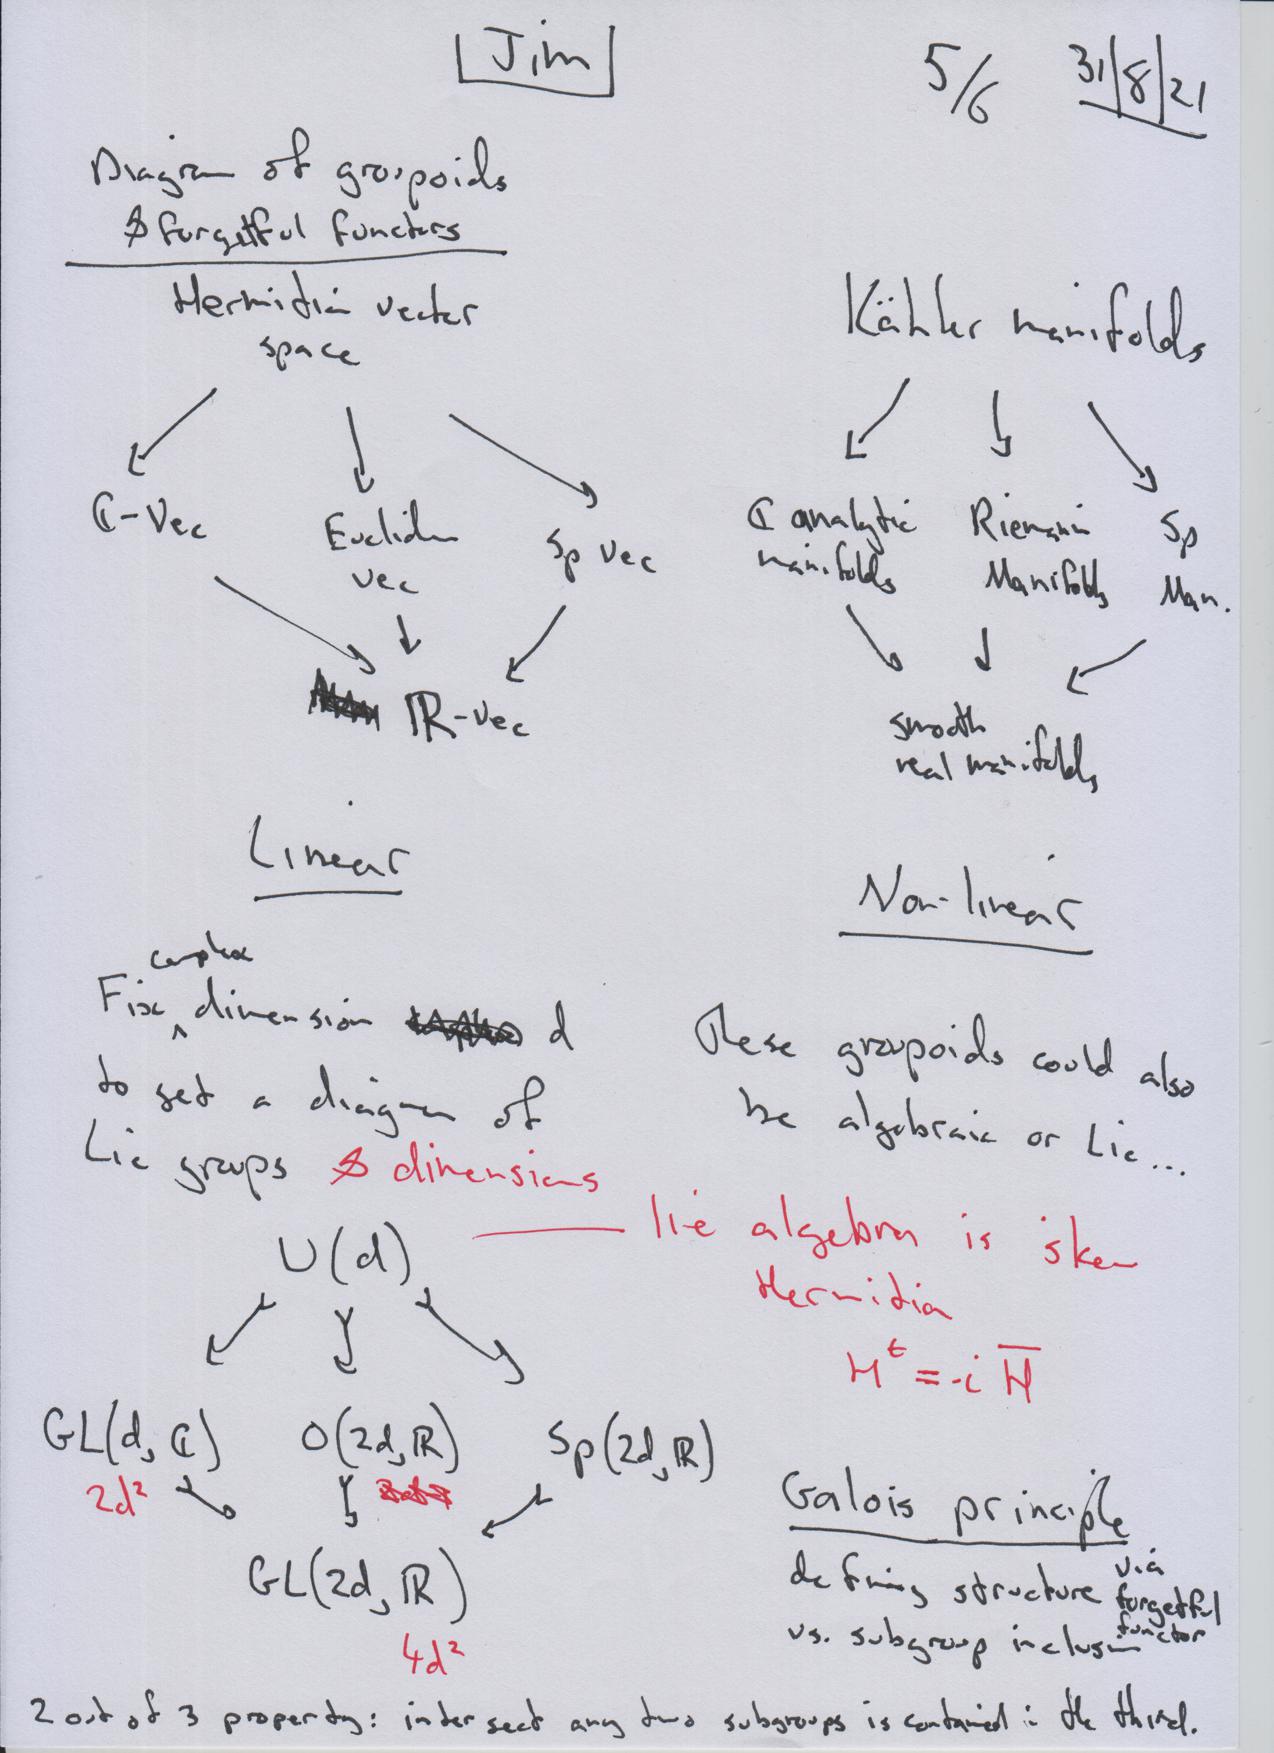 Jim
5/6 31/8/21
Diagram of groupoids
& forgetful functors
Hermitian vector
space
ℂ-Vec
Euclidean
vec
Sp Vec
ℝ-vec
Linear
Kähler manifolds
ℂ analytic
manifolds
Riemann
Manifolds
Sp
Man.
smooth
real manifolds
Non-linear
complex
Fix ^ dimension d
to get a diagram of
Lie groups & dimensions
These groupoids could also
be algebraic or Lie...
U(d)
lie algebra is skew
Hermitian
H^t = -i H̅
GL(d, ℂ)
2d²
O(2d, ℝ)
Sp(2d, ℝ)
GL(2d, ℝ)
4d²
Galois principle
defining structure via
forgetful
functor
vs. subgroup inclusion
2 out of 3 property: intersect any two subgroups is contained in the third.